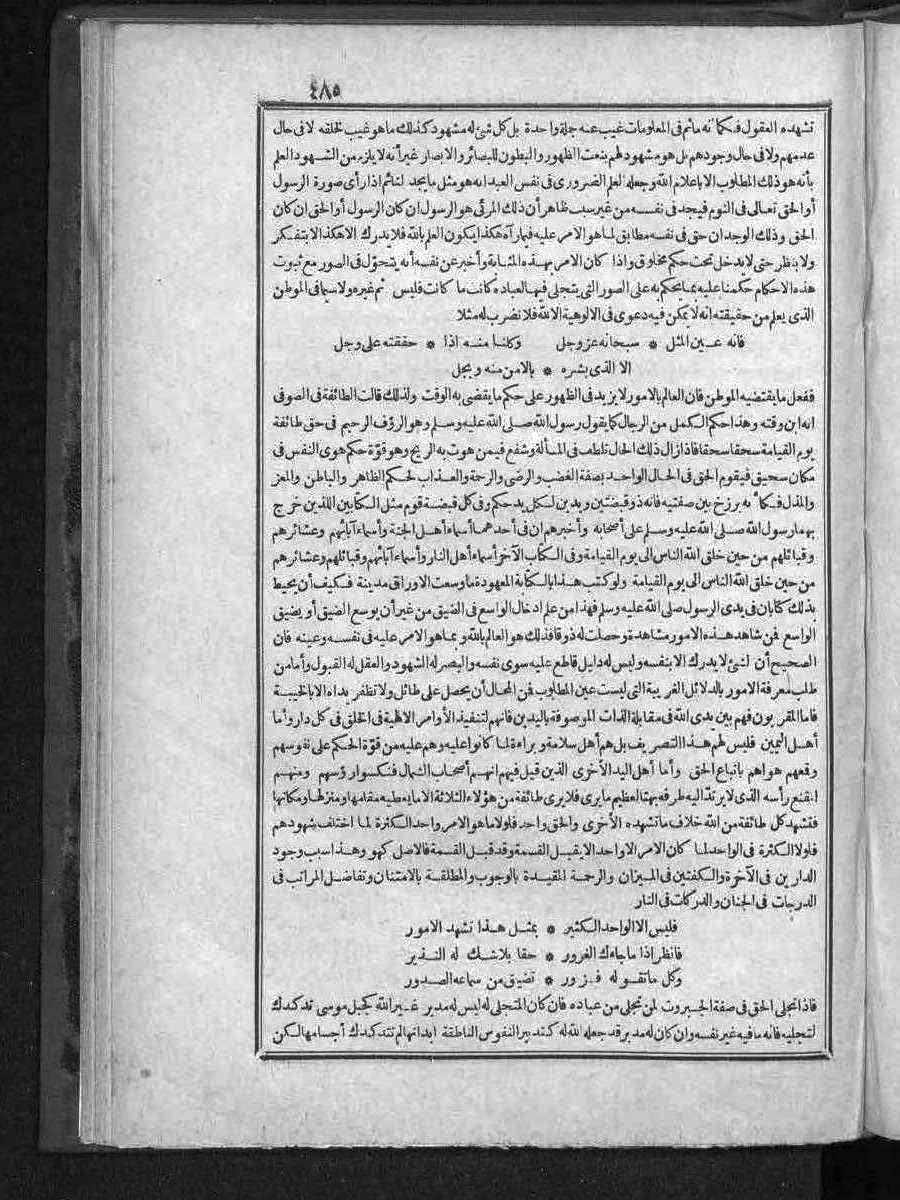 ٤٨٥
تشهده العقول فكما انه ماثم فى المعلومات غيب عنه جلة واحدة بل كل شئ له مشهود كذلك ما هو غيب لخلقه لا فى حال
عدمهم ولا فى حال وجودهم بل هو مشهود لهم بنعت الظهور والبطون للبصائر والابصار غير أنه لا يلزم من الشهود العلم
بأنه هو ذلك المطلوب الا باعلام الله وجعله العلم الضرورى فى نفس العبد انه هو مثل ما يجد النائم اذا رأى صورة الرسول
أو الحق تعالى فى النوم فيجد فى نفسه من غير سبب ظاهر أن ذلك المرئى هو الرسول ان كان الرسول أو الحق ان كان
الحق وذلك الوجدان حق فى نفسه مطابق لما هو الامر عليه فيما رآه هكذا يكون العلم بالله فلا يدرك الا هكذا لا بتفكر
ولا بنظر حتى لا يدخل تحت حكم مخلوق واذا كان الامر بهذه المثابة وأخبر عن نفسه أنه يتحوّل فى الصور مع ثبوت
هذه الاحكام حكمنا عليه بما يحكم به على الصور التى يتجلى فيها العباده كانت ما كانت فليس ثم غيره ولا سيما فى الموطن
الذى يعلم من حقيقته انه لا يمكن فيه دعوى فى الالوهية الا لله فلا نضرب له مثلا
فانه عين المثل * سبحانه عز وجل وكلنا منه اذا * حققته على وجل
الا الذى بشره * بالامن منه وبجل
ففعل ما يقتضيه الموطن فان العالم بالامور لا يزيد فى الظهور على حكم ما يقضى به الوقت ولذلك قالت الطائفة فى الصوفى
انه ابن وقته وهذا حكم الكمل من الرجال كما يقول رسول الله صلى الله عليه وسلم وهو الرؤف الرحيم فى حق طائفة
يوم القيامة سحقا سحقا فاذا زال ذلك الحال تلطف فى المسألة وشفع فيمن هوت به الريح وهو قوّة حكم هوى النفس فى
مكان سحيق فيقوم الحق فى الحال الواحد بصفة الغضب والرضى والرحمة والعذاب لحكم الظاهر والباطن والمعز
والمذل فكأنه برزخ بين صفتيه فانه ذو قبضتين ويدين لكل يد حكم وفى كل قبضة قوم مثل الكتابين اللذين خرج
بهما رسول الله صلى الله عليه وسلم على أصحابه وأخبرهم ان فى أحدهما أسماء أهل الجنة وأسماء آبائهم وعشائرهم
وقبائلهم من حين خلق الله الناس الى يوم القيامة وفى الكتاب الآخر أسماء أهل النار وأسماء آبائهم وقبائلهم وعشائرهم
من حين خلق الله الناس الى يوم القيامة ولو كتب هذا بالكتابة المعهودة ما وسعت الاوراق مدينة فكيف أن يحيط
بذلك كتابان فى يدى الرسول صلى الله عليه وسلم فهذا من علم ادخال الواسع فى الضيق من غير أن يوسع الضيق أو يضيق
الواسع فمن شاهد هذه الامور مشاهدة وحصلت له ذوقا فذلك هو العالم بالله وبما هو الامر عليه فى نفسه وعينه فان
الصحيح أن الشئ لا يدرك الا بنفسه وليس له دليل قاطع عليه سوى نفسه والبصر له الشهود والعقل له القبول وأما من
طلب معرفة الامور بالدلائل الغريبة التى ليست عين المطلوب فمن المحال أن يحصل على طائل ولا تظفر يداه الا بالخيبة
فاما المقربون فهم بين يدى الله فى مقابلة الذات الموصوفة باليدين فانهم لتنفيذ الأوامر الالهية فى الخلق فى كل دار وأما
أهل اليمين فليس لهم هذا التصريف بل هم أهل سلامة وبراءة لما كانوا عليه وهم عليه من قوّة الحكم على نفوسهم
وقمعهم هواهم باتباع الحق وأما أهل اليد الأخرى الذين قيل فيهم انهم أصحاب الشمال فنكسوا رؤسهم ومنهم
المقنع رأسه الذى لا يرتد اليه طرفه بهتا لعظيم ما يرى فلا يرى طائفة من هؤلاء الثلاثة الا ما يعطيه مقامها ومنزلها ومكانها
فتشهد كل طائفة من الله خلاف ما تشهده الأخرى والحق واحد فلولا ما هو الامر واحد الكثرة لما اختلف شهودهم
فلولا الكثرة فى الواحد لما كان الامر الا واحدا لا يقبل القسمة وقد قبل القسمة فالاصل كهو وهذا سبب وجود
الدارين فى الآخرة والكفتين فى الميزان والرحمة المقيدة بالوجوب والمطلقة بالامتنان وتفاضل المراتب فى
الدرجات فى الجنان والدركات فى النار
فليس الا الواحد الكثير * بمثل هذا تشهد الامور
فانظر اذا ما جاءك الغرور * حقا بلاشك له النذير
وكل ما تقوله فزور * تضيق من سماعه الصدور
فاذا تجلى الحق فى صفة الجبروت لمن تجلى من عباده فان كان المتجلى له ليس له مدبر غير الله كجبل موسى تدكدك
لتجليه فانه ما فيه غير نفسه وان كان له مدبر قد جعله الله له كتدبير النفوس الناطقة ابدانها لم تتدكدك أجسامها لكن